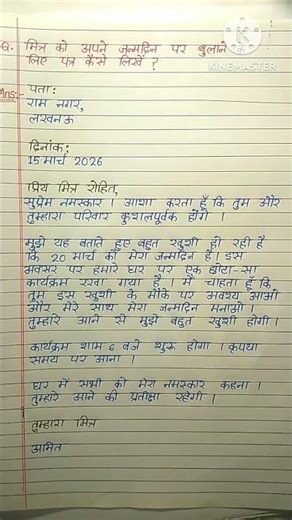 Q. मित्र को अपने जन्मदिन पर बुलाने के
लिए पत्र कैसे लिखें ?
KINEMASTER
Ans:- पता:
राम नगर,
लखनऊ
दिनांक:
15 मार्च 2026
प्रिय मित्र रोहित,
सुप्रेम नमस्कार । आशा करता हूँ कि तुम और
तुम्हारा परिवार कुशलपूर्वक होंगे ।
मुझे यह बताते हुए बहुत खुशी हो रही है
कि 20 मार्च को मेरा जन्मदिन है। इस
अवसर पर हमारे घर पर एक छोटा-सा
कार्यक्रम रखा गया है । मैं चाहता हूँ कि
तुम इस खुशी के मौके पर अवश्य आओ
और मेरे साथ मेरा जन्मदिन मनाओ ।
तुम्हारे आने से मुझे बहुत खुशी होगी ।
कार्यक्रम शाम 6 बजे शुरू होगा । कृपया
समय पर आना ।
घर में सभी को मेरा नमस्कार कहना ।
तुम्हारे आने की प्रतीक्षा रहेगी ।
तुम्हारा मित्र
अमित